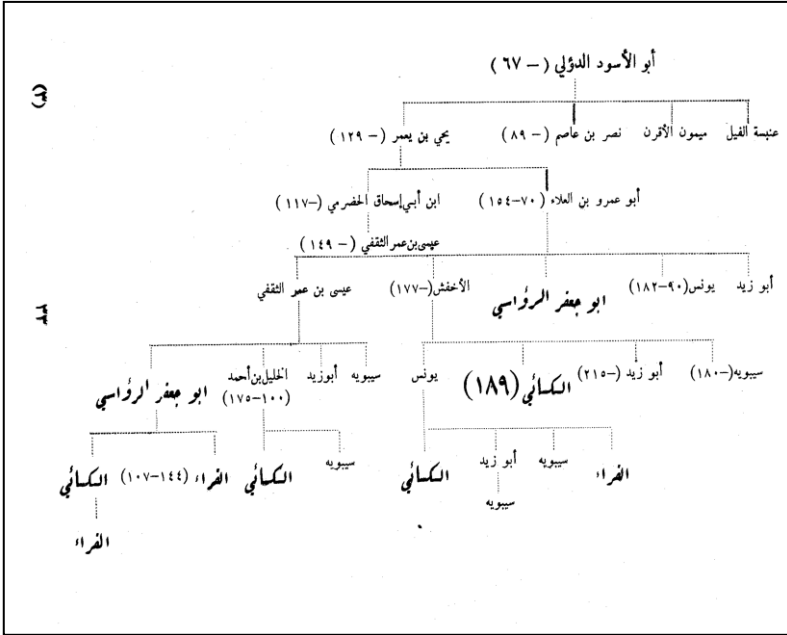 أبو الأسود الدؤلي ( – ٦٧ )
(٣)
عنبسة الفيل ميمون الأقرن نصر بن عاصم ( – ٨٩ ) يحي بن يعمر ( – ١٢٩ )
أبو عمرو بن العلاء ( ٧٠–١٥٤ ) ابن أبي إسحاق الحضرمي (–١١٧ )
عيسى بن عمر الثقفي ( – ١٤٩ )
أبو زيد يونس (٩٠–١٨٢) ابو جعفر الرؤاسي الأخفش (–١٧٧) عيسى بن عمر الثقفي
٣٣
سيبويه (–١٨٠) أبو زيد (–٢١٥) الكسائي (١٨٩) يونس سيبويه أبو زيد الخليل بن أحمد ابو جعفر الرؤاسي
(١٠٠–١٧٥)
الفراء سيبويه أبو زيد الكسائي سيبويه الكسائي الفراء (١٤٤–١٠٧) الكسائي
سيبويه
الفراء